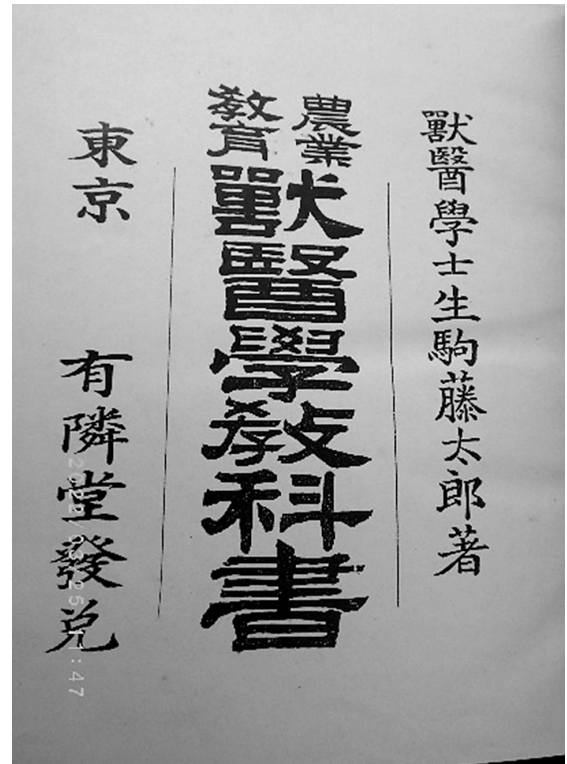 獸醫學士生駒藤太郎著
農業
教育
獸醫學教科書
東京 有隣堂發兌